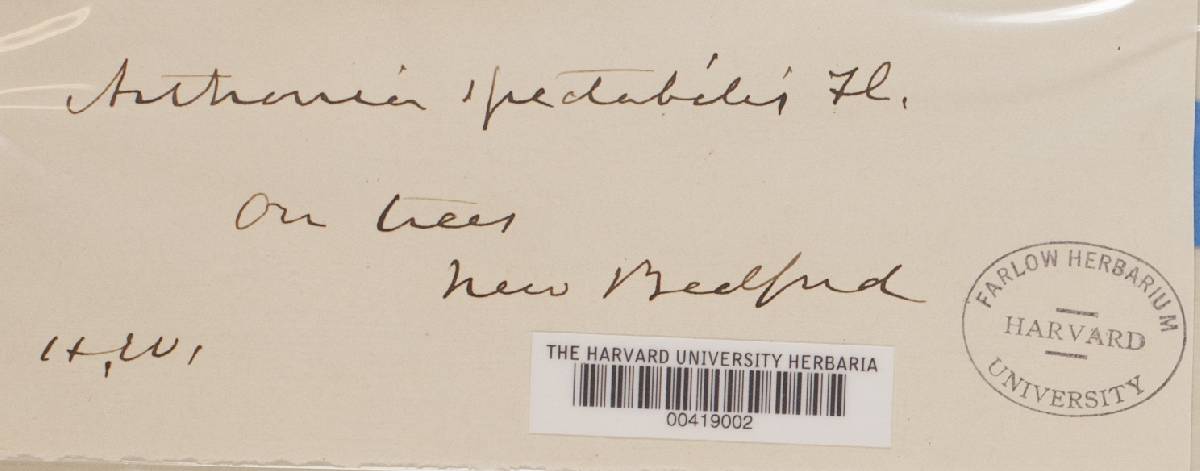 Arthonia spectabilis Fl.
On trees
New Bedford
H. W.
THE HARVARD UNIVERSITY HERBARIA
00419002
FARLOW HERBARIUM
HARVARD
UNIVERSITY